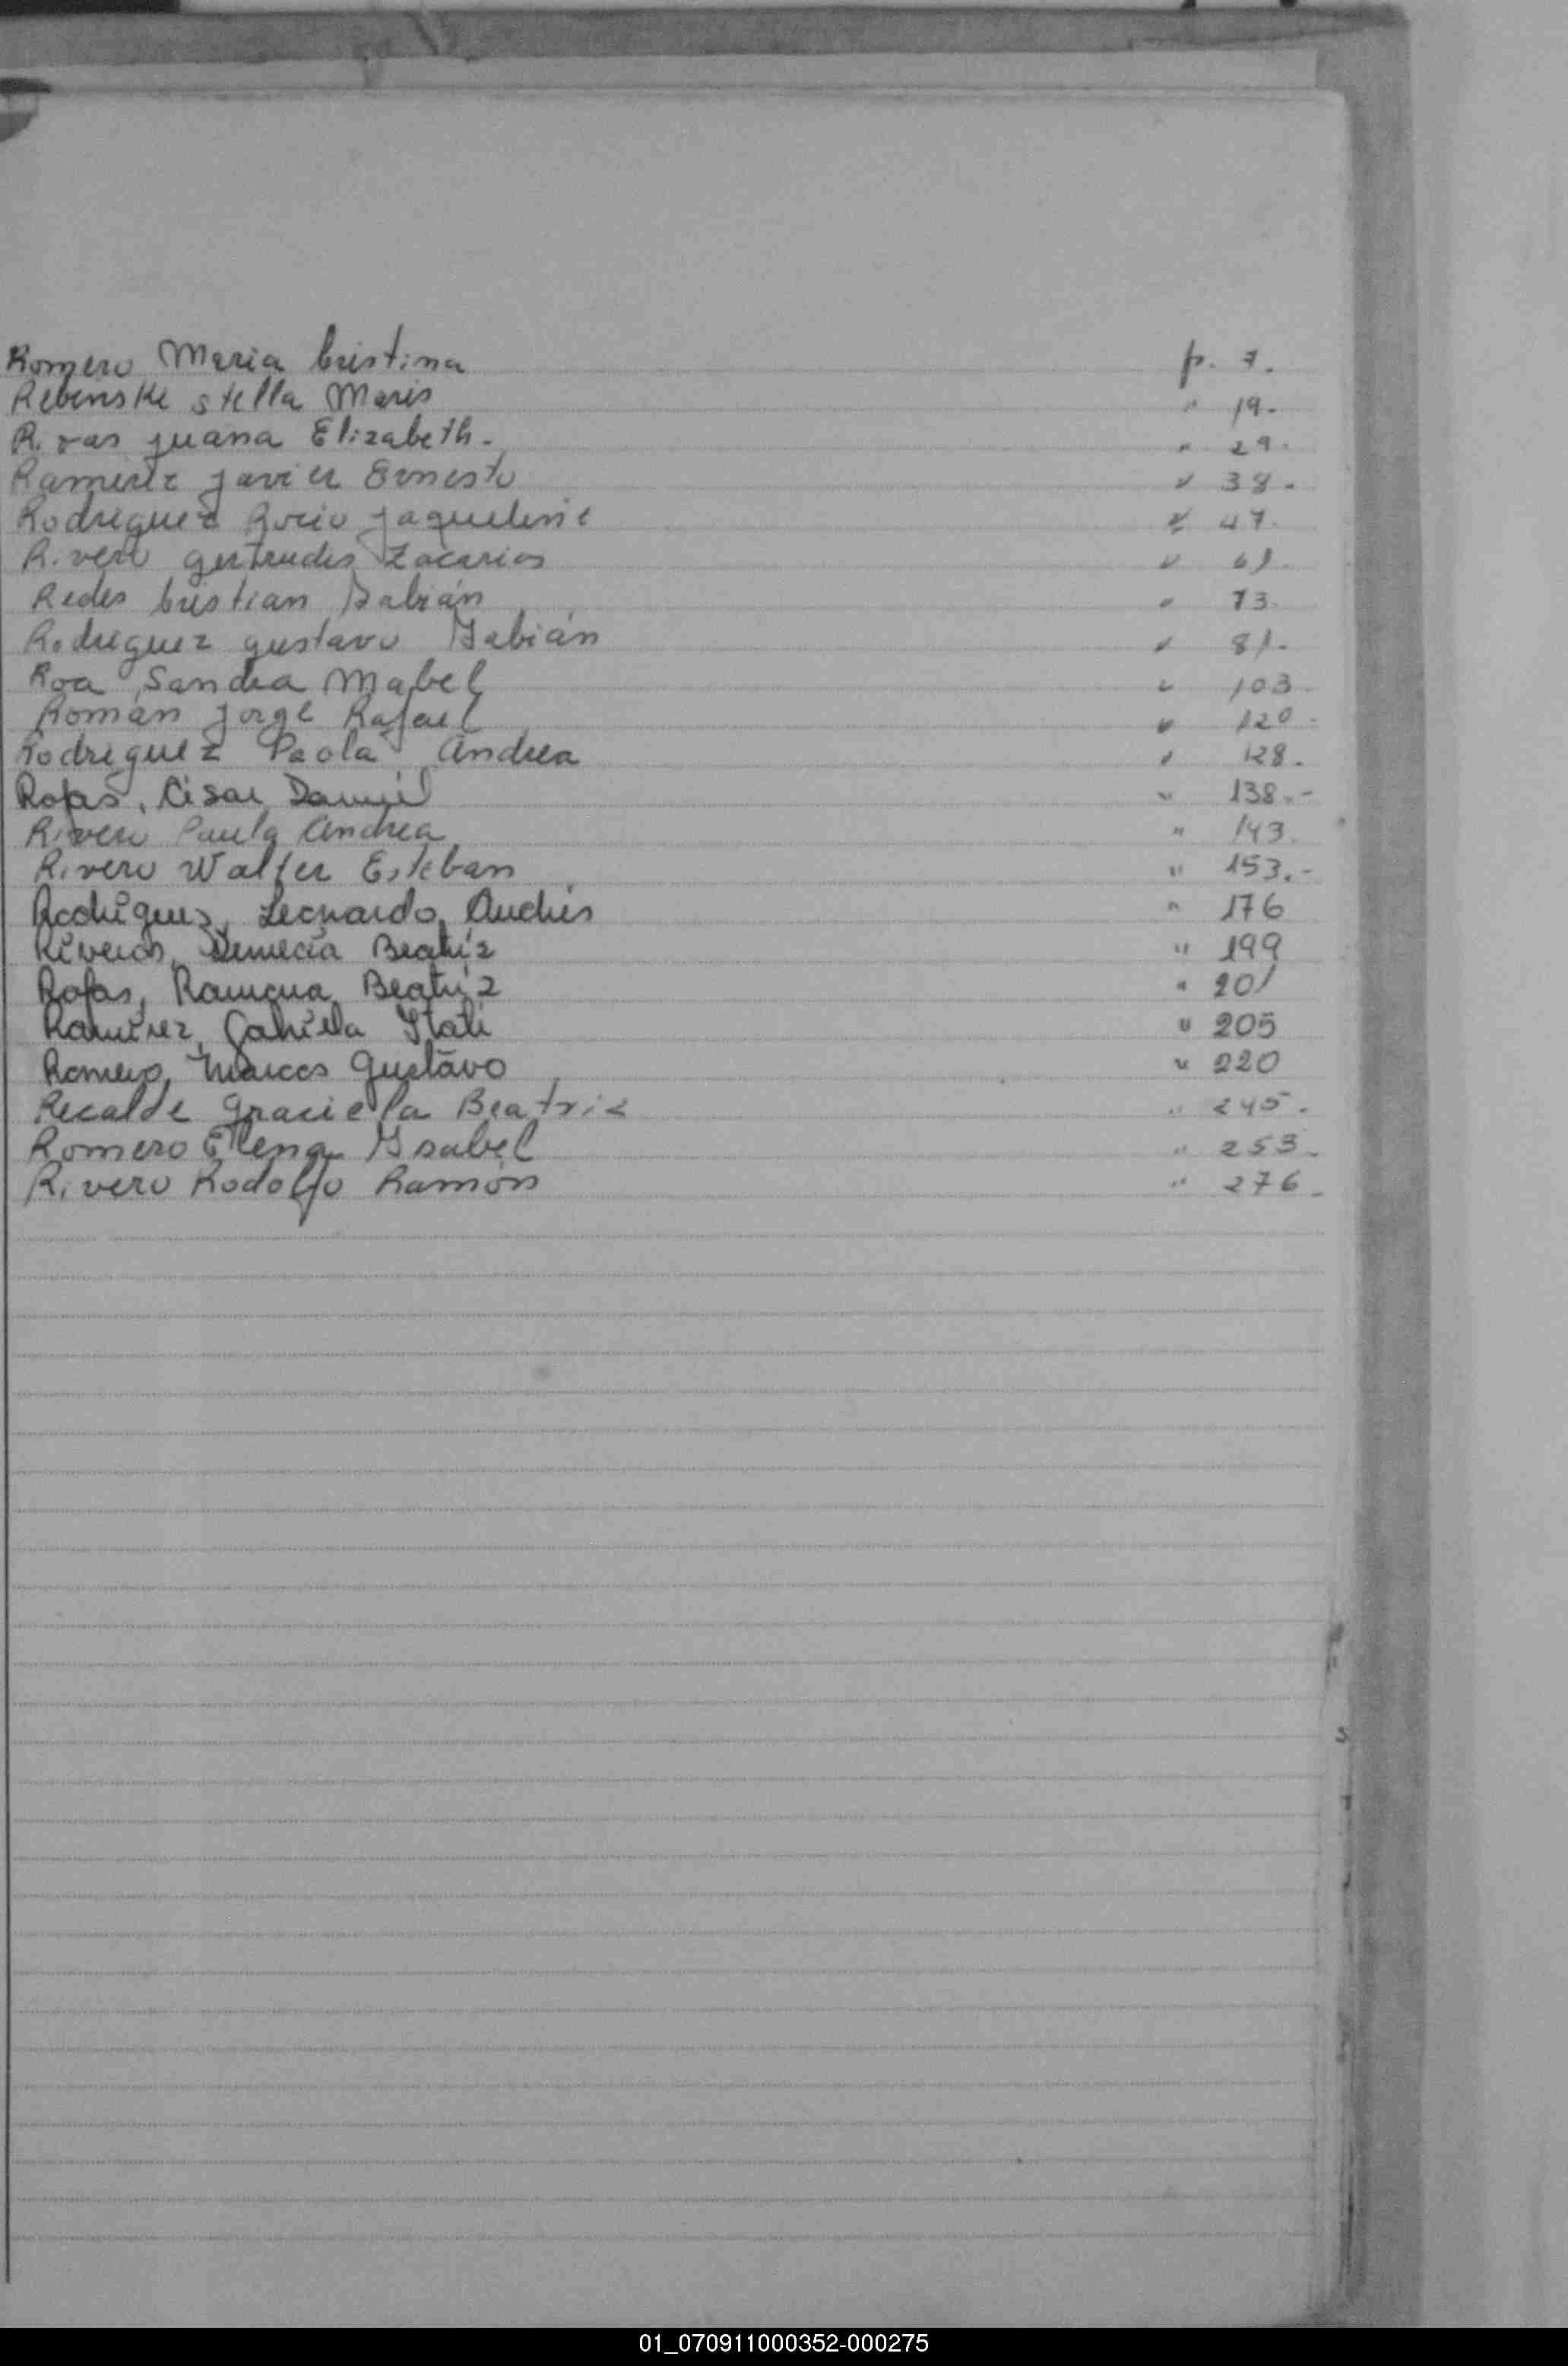 Romero Maria Cristina p. 7.
Rebinske Stella Maris " 19.
Rivas Juana Elizabeth. " 29.
Ramirez Javier Ernesto " 38.
Rodriguez Rocio Jaqueline " 47.
Rivero Gertrudis Zacarias " 61.
Redes Cristian Fabián " 73.
Rodriguez Gustavo Fabián " 81.
Roa Sandra Mabel " 103.
Román Jorge Rafael " 120.
Rodriguez Paola Andrea " 128.
Rojas, César Daniel " 138.-
Rivero Paula Andrea " 143.
Rivero Walter Esteban " 153.-
Rodríguez, Leonardo Andrés " 176
Riveros, Beatríz " 199
Rojas, Ramona Beatríz " 201
Ramírez, Gabriela Itatí " 205
Romero, Marcos Gustavo " 220
Recalde Graciela Beatriz " 245.
Romero Elena Ysabel " 253.
Rivero Rodolfo Ramón " 276.
01_070911000352-000275